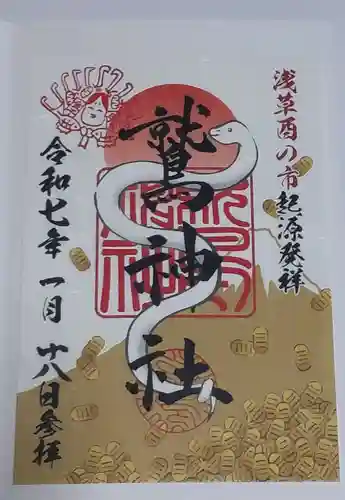 浅草酉の市起源発祥
鷲神社
令和七年一月十八日参拝